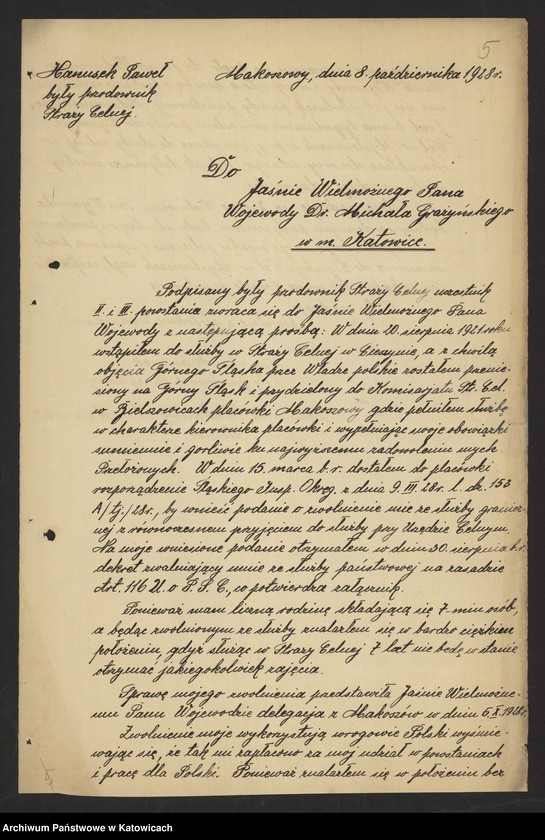 5
Hanusek Paweł Makoszowy, dnia 8. października 1928 r.
były przodownik
Straży Celnej.
Do
Jaśnie Wielmożnego Pana
Wojewody Dr. Michała Grażyńskiego
w m. Katowice.
Podpisany były przodownik Straży Celnej uczestnik
II i III. powstania zwraca się do Jaśnie Wielmożnego Pana
Wojewody z następującą prośbą: W dniu 20. sierpnia 1921 roku
wstąpiłem do służby w Straży Celnej w Cieszynie, a z chwilą
objęcia Górnego Śląska przez Władze polskie zostałem przenie-
siony na Górny Śląsk i przydzielony do Komisarjatu Str. Cel.
w Bielszowicach placówki Makoszowy gdzie pełniłem służbę
w charakterze kierownika placówki i wypełniając swoje obowiązki
sumiennie i gorliwie ku najwyższemu zadowoleniu mych
Przełożonych. W dniu 15. marca b. r. dostałem do placówki
rozporządzenie Śląskiego Insp. Okręg. z dnia 9. III. 28 r. l. dz. 153
A/tj./28 r., by wnieść podanie o zwolnienie mię ze służby granicz-
nej z równoczesnem przyjęciem do służby przy Urzędzie Celnym.
Na moje wniesione podanie otrzymałem w dniu 30. sierpnia b. r.
dekret zwalniający mnie ze służby państwowej na zasadzie
Art. 116 U. o P. S. C., co potwierdza załącznik.
Ponieważ mam liczną rodzinę składającą się z 7-miu osób,
a będąc zwolnionym ze służby znalazłem się w bardzo ciężkiem
położeniu, gdyż służąc w Straży Celnej 7 lat nie będę w stanie
otrzymać jakiegokolwiek zajęcia.
Sprawę mojego zwolnienia przedstawiła Jaśnie Wielmożne-
mu Panu Wojewodzie delegacja z Makoszów w dniu 6. X. 1928 r.
Zwolnienie moje wykorzystują wrogowie Polski wyśmie-
wając się, że tak mi zapłacono za mój udział w powstaniach
i pracę dla Polski. Ponieważ znalazłem się w położeniu bez
Archiwum Państwowe w Katowicach